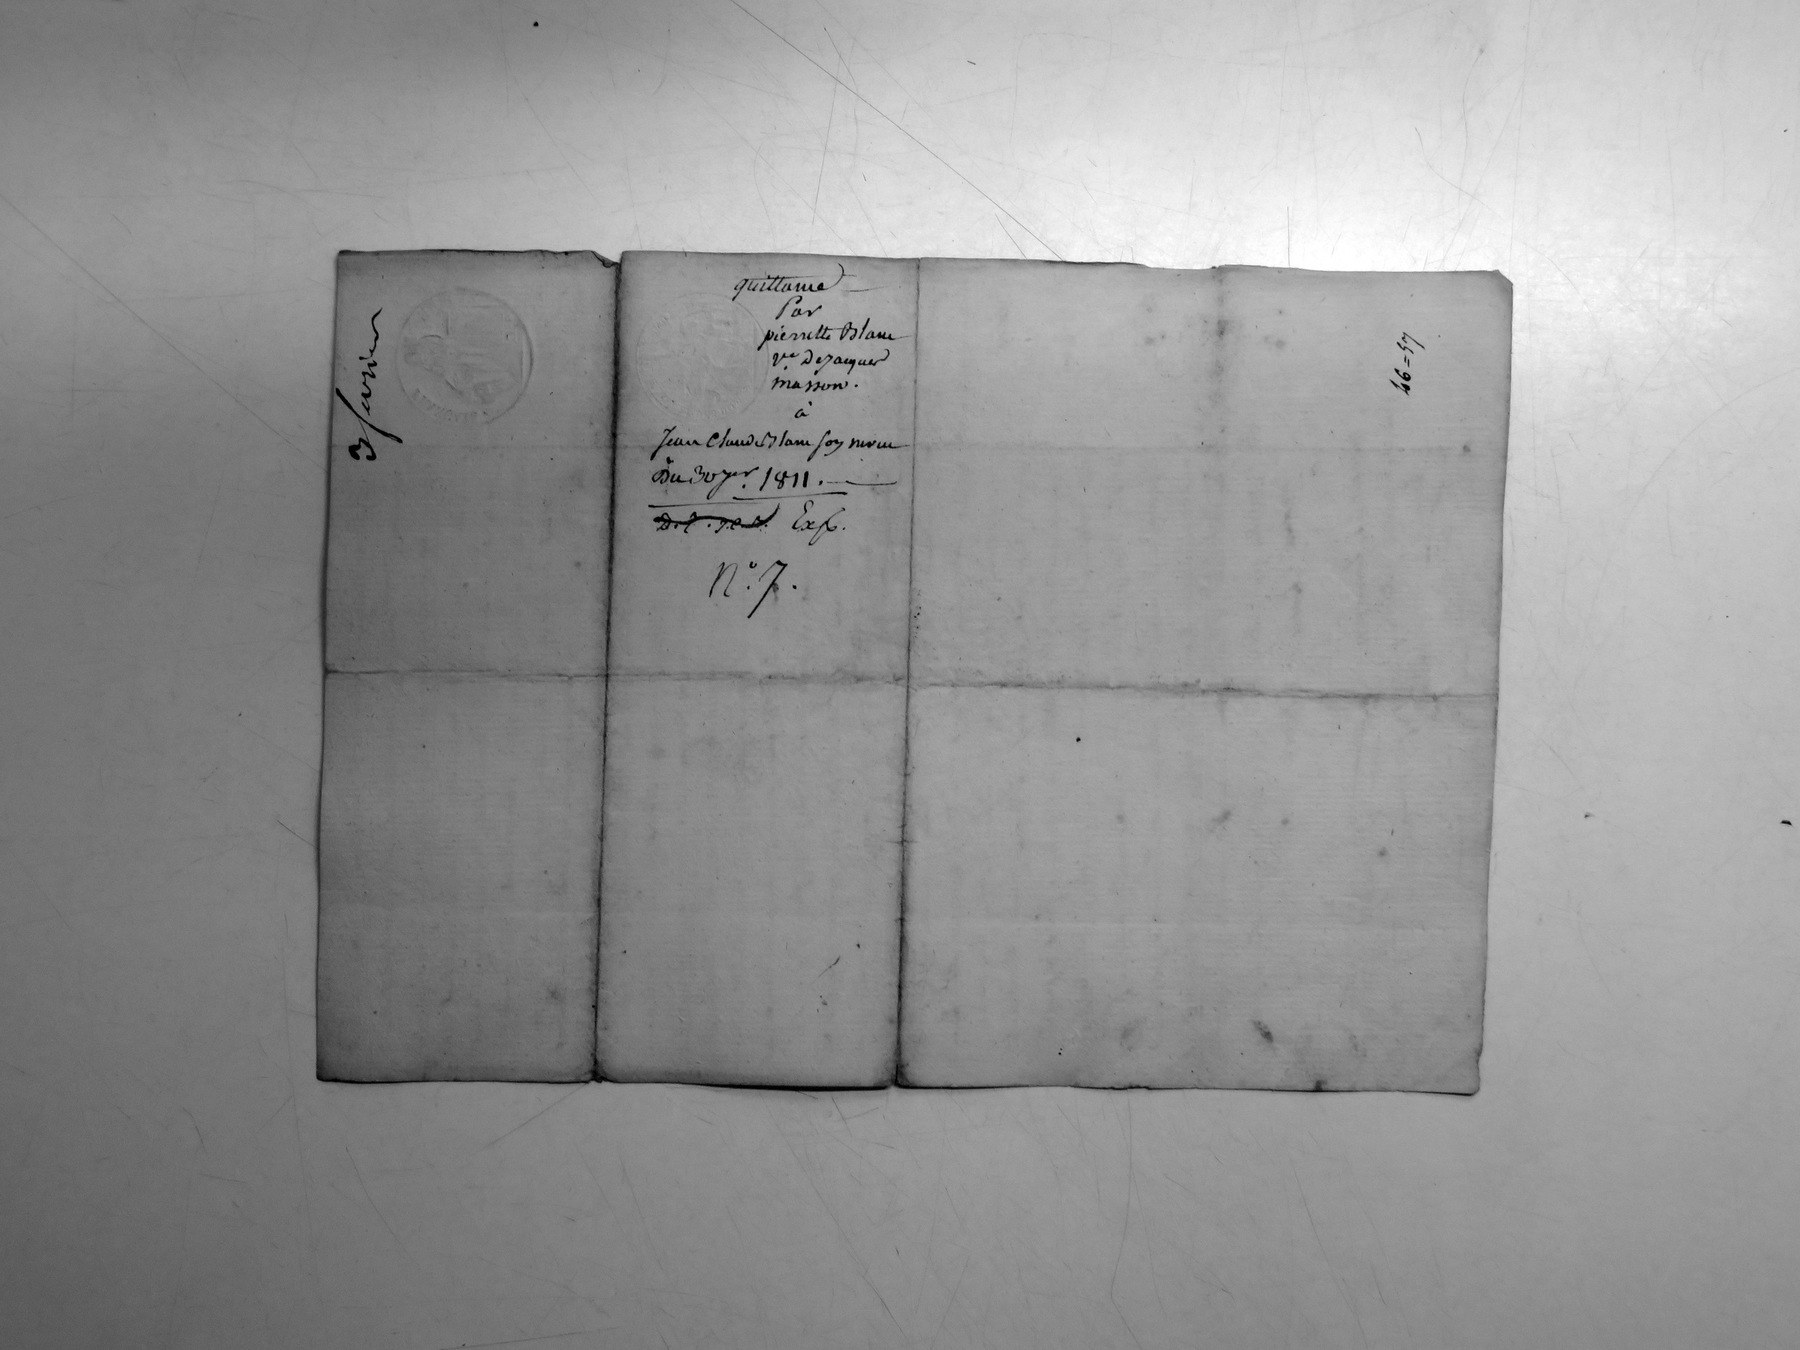 3 fevrier
quittance
Par
pierrette Blanc
ve De Jacques
masson.
à
Jean Claude Blanc son neveu
Du 30 Jer. 1811.
Exp.
N° 7.
46=57